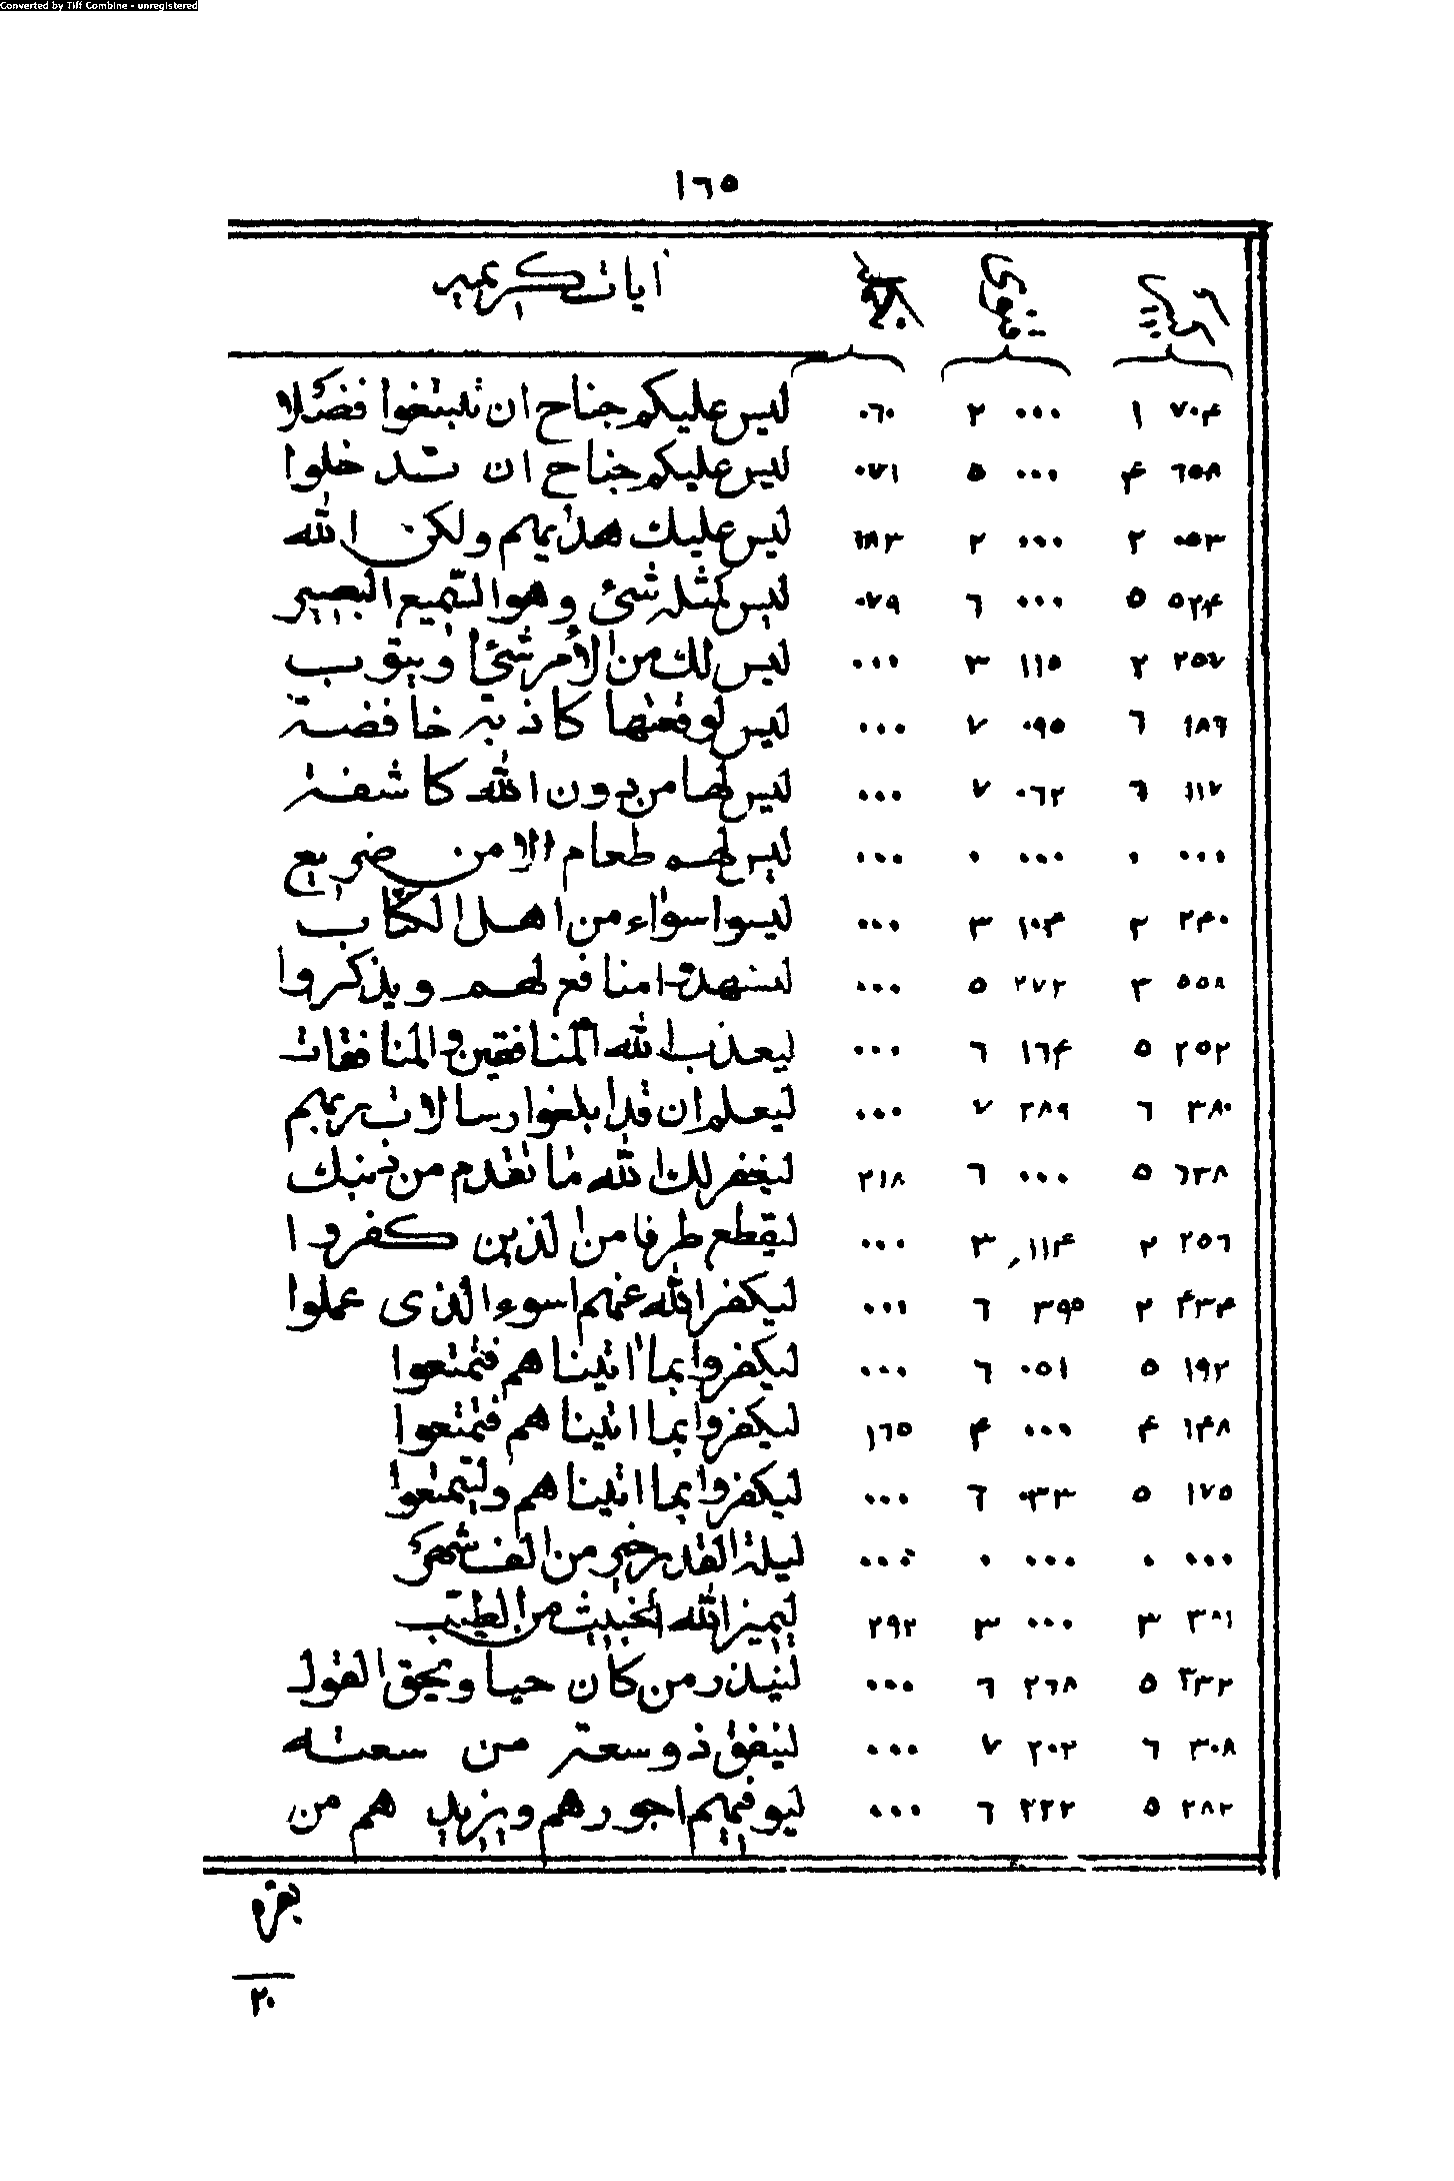 Converted by Tiff Combine - unregistered
١٦٥
ايات كريمه
٧٠۴ ١ ٠٠٠ ٢ ٠٦٠ ليس عليكم جناح ان تبتغوا فضلا
٦٥٨ ۴ ٠٠٠ ٥ ٠٧١ ليس عليكم جناح ان تدخلوا
٠٥٣ ٢ ٠٠٠ ٢ ٦٨٣ ليس عليك هديهم ولكن الله
٥٢۴ ٥ ٠٠٠ ٦ ٠٧٩ ليس كمثله شئ وهو السّميع البصير
٢٥٧ ٢ ١١٥ ٣ ٠٠٠ ليس لك من الأمر شئ او يتوب
١٨٦ ٦ ٠٩٥ ٧ ٠٠٠ ليس لوقعتها كاذبة خافضة
١١٧ ٦ ٠٦٢ ٧ ٠٠٠ ليس لها من دون الله كاشفة
٠٠٠ ٠ ٠٠٠ ٠ ٠٠٠ ليس لهم طعام الا من ضريع
٢۴٠ ٢ ١٠۴ ٣ ٠٠٠ ليسوا سواء من اهل الكتاب
٥٥٨ ٣ ٢٧٢ ٥ ٠٠٠ ليشهدوا منافع لهم ويذكروا
٢٥٢ ٥ ١٦۴ ٦ ٠٠٠ ليعذب الله المنافقين والمنافقات
٣٨٠ ٦ ٢٨٩ ٧ ٠٠٠ ليعلم ان قد ابلغوا رسالات ربهم
٦٣٨ ٥ ٠٠٠ ٦ ٢١٨ ليغفر لك الله ما تقدم من ذنبك
٢٥٦ ٢ ١١۴ ٣ ٠٠٠ ليقطع طرفا من الذين كفروا
۴٣۴ ٢ ٣٩٥ ٦ ٠٠٠ ليكفر الله عنهم اسوء الذى عملوا
١٩٢ ٥ ٠٥١ ٦ ٠٠٠ ليكفروا بما اتيناهم فتمتعوا
١۴٨ ۴ ٠٠٠ ۴ ١٦٥ ليكفروا بما اتيناهم فتمتعوا
١٧٥ ٥ ٠٣٣ ٦ ٠٠٠ ليكفروا بما اتيناهم وليتمتعوا
٠٠٠ ٠ ٠٠٠ ٠ ٠٠٠ ليلة القدر خير من الف شهر
٣٨١ ٣ ٠٠٠ ٣ ٢٩٢ ليميز الله الخبيث من الطيّب
٣٣٢ ٥ ٢٦٨ ٦ ٠٠٠ لينذر من كان حيا ويحق القول
٣٠٨ ٦ ٢٠٢ ٧ ٠٠٠ لينفق ذو سعة من سعته
٢٨٢ ٥ ٢٢٢ ٦ ٠٠٠ ليوفيهم اجورهم ويزيد هم من
٢٠